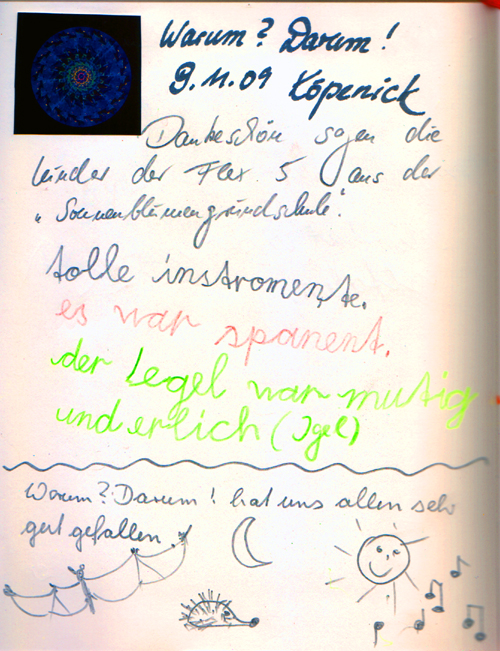 Warum? Darum!
9.11.09 Köpenick
Dankeschön sagen die
Kinder der Flex 5 aus der
„Sonnenblumengrundschule".
tolle instromente.
es war spanent.
der Legel war mutig
und erlich (Igel)
Warum? Darum! hat uns allen sehr
gut gefallen.